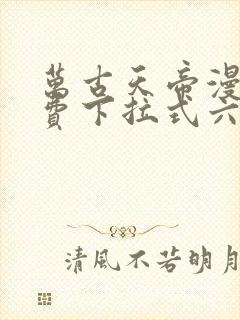 萬古天帝漫
費下拉式六
清風不若明月